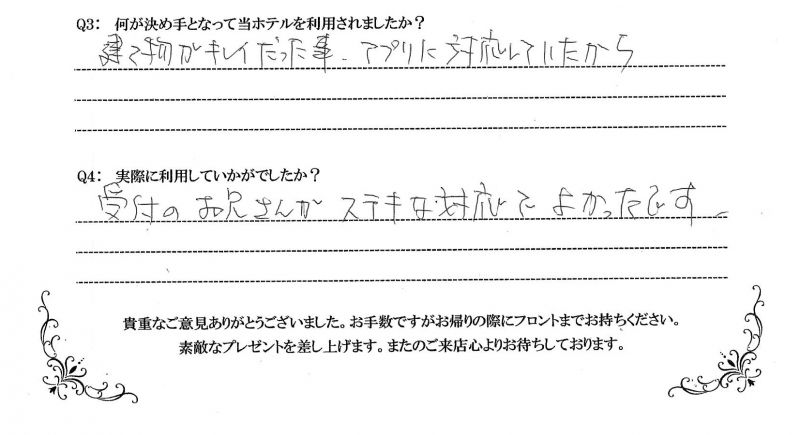 Q3: 何が決め手となって当ホテルを利用されましたか？
建て物がキレイだった事、アプリに対応していたから
Q4: 実際に利用していかがでしたか？
受付のお兄さんがステキな対応でよかったです。
貴重なご意見ありがとうございました。お手数ですがお帰りの際にフロントまでお持ちください。
素敵なプレゼントを差し上げます。またのご来店心よりお待ちしております。